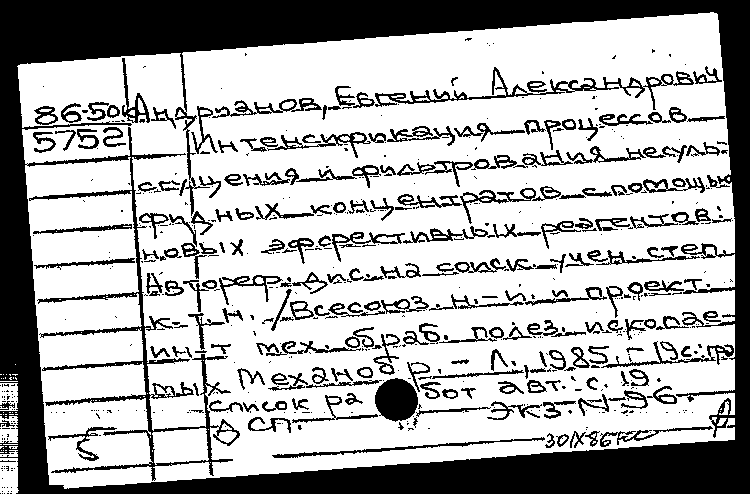 86-50к Андрианов, Евгений Александрович
5752 Интенсификация процессов
сгущения и фильтрования несуль-
фидных концентратов с помощью
новых эффективных реагентов:
Автореф. дис. на соиск. учен. степ.
к.т.н. /Всесоюз. н.-и. и проект.
ин-т мех. обраб. полез. ископае-
мых Механобр. - Л., 1985. - 19с.:гр
список работ авт.: с. 19.
СП. ЭКЗ. N 96.
Б 30IX86